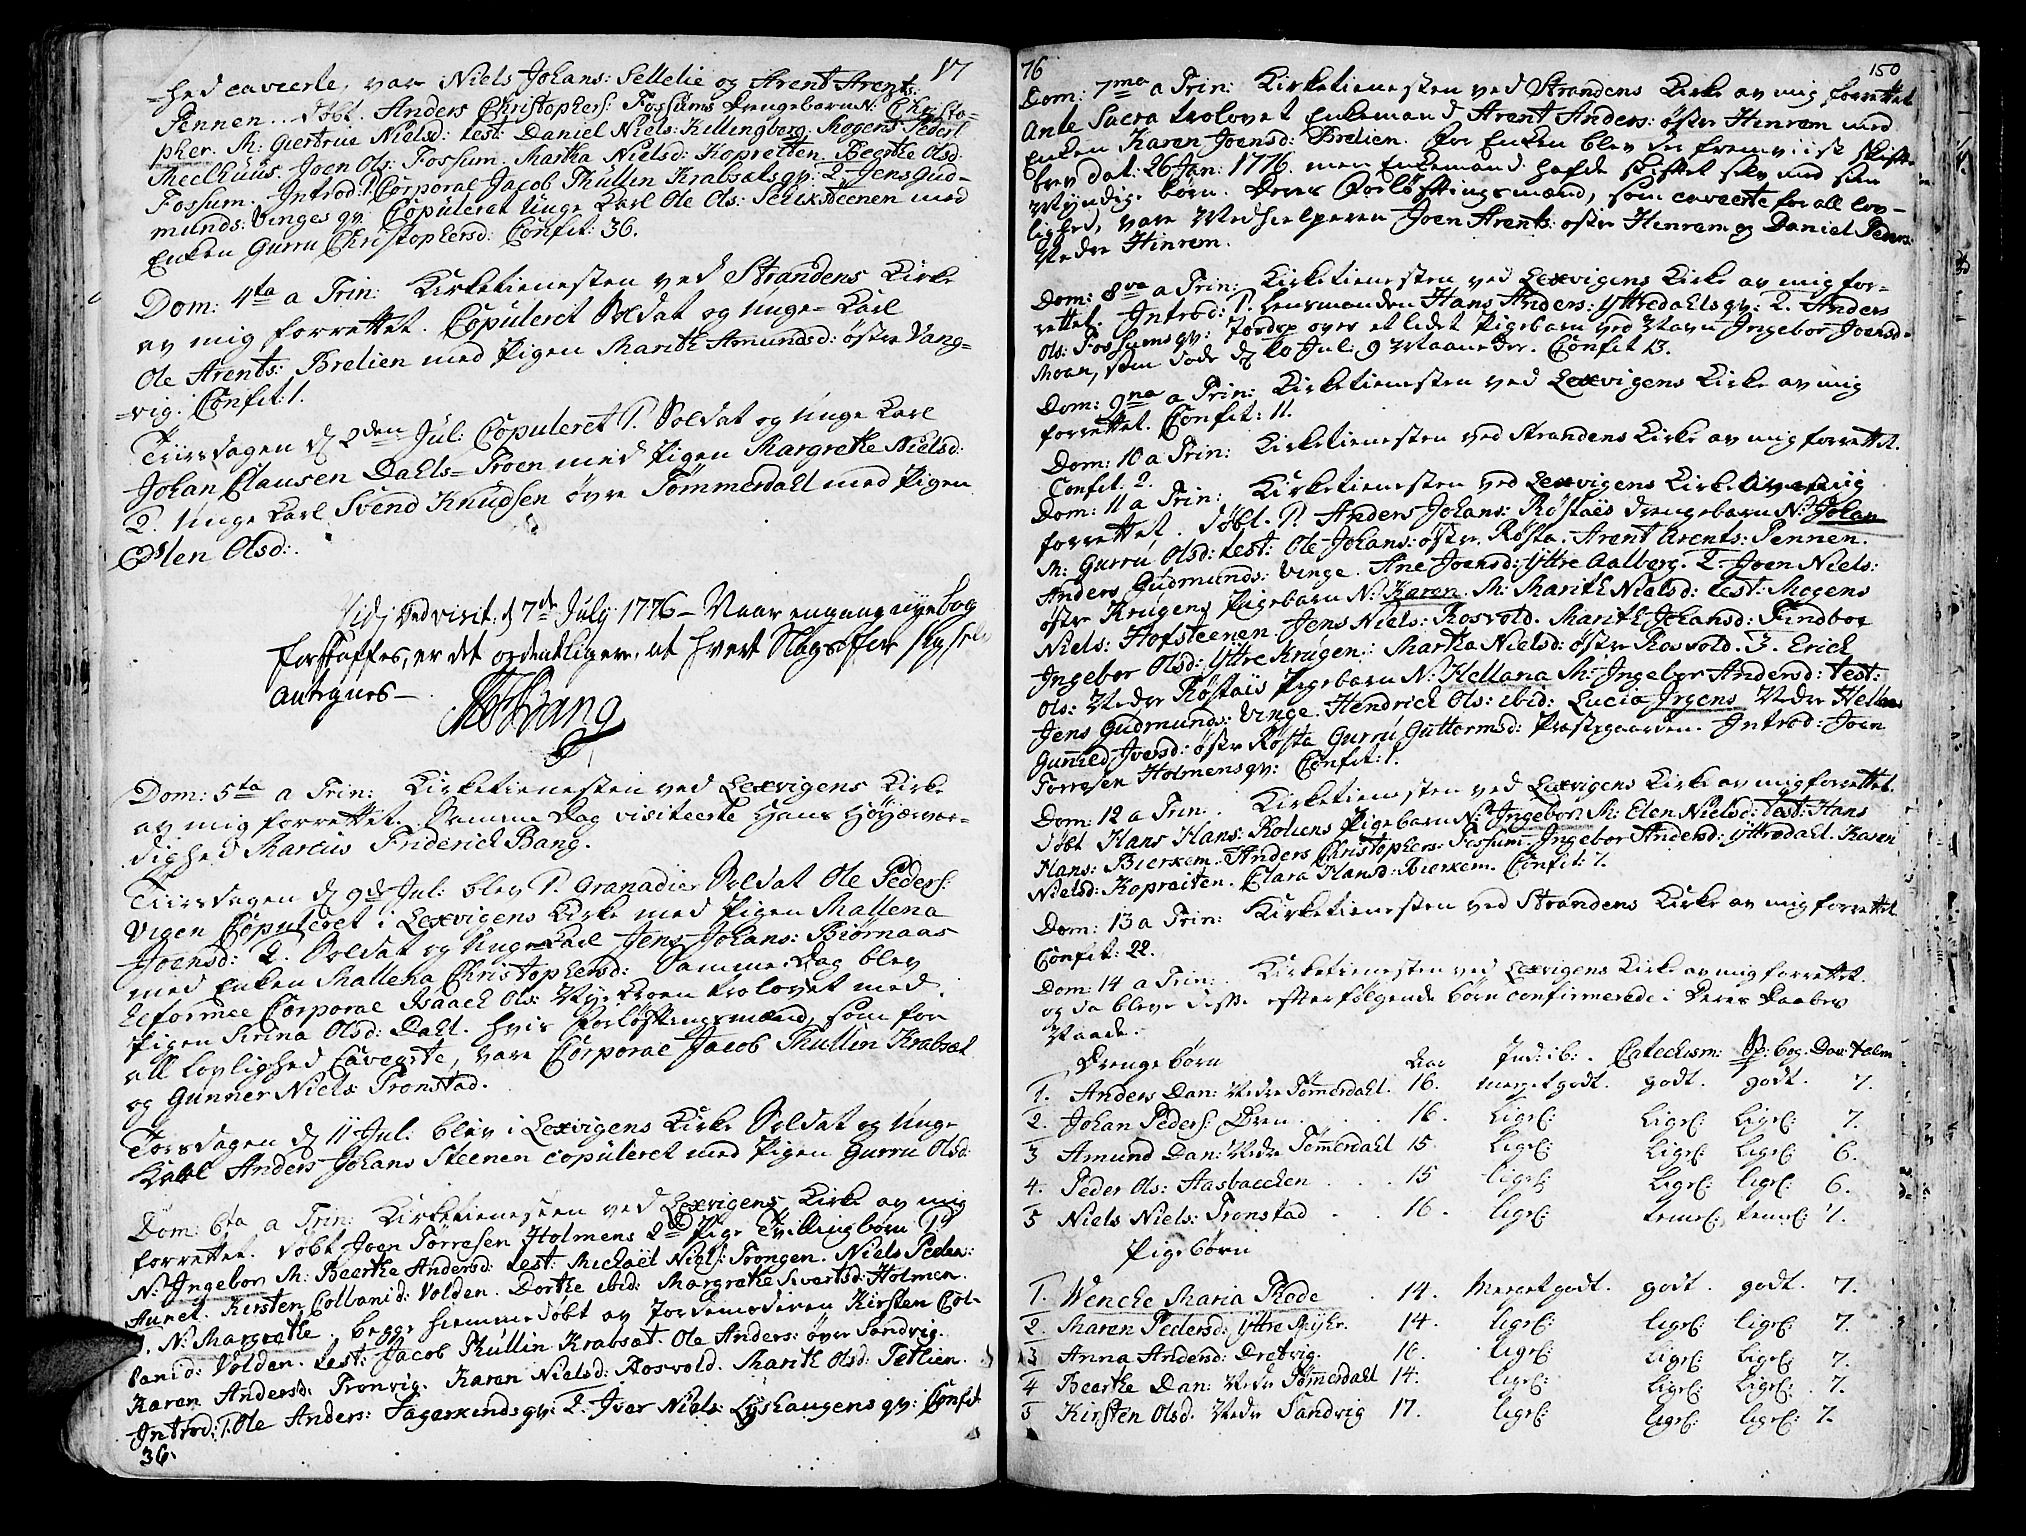 17
-hed caveerte, vare Niels Johans: Sellelie og Arent Arents:
Pennen. Døbt. Anders Christophers: Fossums Drengebarn N: Christo-
pher. M: Giertrue Nielsd: test: Daniel Niels: Killingberg. Mogens Peders
Meelhuus. Joen Ols: Fossum. Martha Nielsd: Kopreiten. Beerthe Olsd:
Fossum. Introd: 1. Corporal Jacob Kullin Krabsæts qv: 2. Jens Gud-
munds: Vinges qv: Copuleret Unge Karl Ole Ols: Schixsteenen med
Enken Gurru Christophersd: Confit: 36.
Dom: 4ta a Trin: Kirketienesten ved Strandens Kirke
av mig forrettet. Copuleret Soldat og Unge-Karl
Ole Arents: Brelien med Pigen Marith Amundsd: østre Vang-
-vig. Confit: 1.
Tiirsdagen d 2den Jul: Copuleret 1. Soldat og Unge Karl
Johan Clausen Dahls-Troen med Pigen Margrethe Nielsd:
2. Unge Karl Svend Knudsen øvre Tømmerdahl med Pigen
Elen Olsd:.
Vidi ved visit: d 7de July 1776 - Naar engang nye bog
forskaffes, er det ordentligere, at hvert Slags
antegnes -
MFBang
Dom: 5ta a Trin: Kirketienesten ved Lexvigens Kirke
av mig forrettet. Samme Dag visiteerte Hans Høyærvær-
dighed Marcus Friderich Bang.
Tiirsdagen d 9de Jul: blev 1. Granadier Soldat Ole Peders:
Vigen Copuleret i Lexvigens Kirke med Pigen Mallena
Joensd: 2. Soldat og Unge Karl Jens Johans: Biørnaas
med Enken Mallena Christophersd: Samme Dag blev
Reformee Corporal Isaach Ols: Nye Troen trolovet med
Pigen Sirina Olsd: Dahl. hvis Forløftningsmænd, som for
all Lovlighed Caveerte, vare Corporal Jacob Kullin Krabsæt
og Gunner Niels: Tronstad.
Torsdagen d 11 Jul: blev i Lexvigens Kirke Soldat og Unge
Karl Anders Johans Steenen copuleret med Pigen Gurru Olsd:
Dom: 6ta a Trin: Kirketienesten ved Lexvigens Kirke av mig
forrettet. Døbt Joen Torresen Holmens 2de Pige Tvillingbørn 1.
N: Ingebor M: Beerthe Andersd: test: Michael Niels: Trongen. Niels Peders:
Auret. Kirsten Collbanid: Volden. Dorthe ibid: Margrethe Sivertsd: Holmen.
2. N: Margrethe. begge hiemmedøbt av Jordemoderen Kirsten Col-
banid: Volden. test: Jacob Kullin Krabsæt. Ole Anders: øvre Sandvig.
Karen Andersd: Tronvig. Karen Nielsd: Rosvold. Marith Olsd: Tetlien.
Introd: 1. Ole Anders: Fagerrends qv: 2. Iver Niels: Lyshaugens qv: Confit
36.
76
150
Dom: 7ma a Trin: Kirketienesten ved Strandens Kirke av mig forrettet
Ante Sacra trolovet Enkemand Arent Anders: østre Hinrem med
Enken Karen Joensd: Brelien. For Enken blev der freemviist Skifte
brev dat: 26 Jan: 1776. men Enkemand hafde skiftet selv med sine
Myndige børn. Deres Forløftningsmænd, som caveerte for all lov-
lighed, vare Medhielperen Joen Arents: østre Hinrem og Daniel Peders:
Nedre Hinrem.
Dom: 8va a Trin: Kirketienesten ved Lexvigens Kirke av mig for-
rettet. Introd: 1. Lensmanden Hans Anders: Yttredahls qv: 2. Anders
Ols: Fossums qv: Jordsp over et lidet Pigebarn ved Navn Ingebor Joensd:
Moan, som døde d 10 Jul: 9 Maaneder. Confit 13.
Dom: 9na a Trin: Kirketienesten ved Lexvigens Kirke av mig
forrettet. Confit: 11.
Dom: 10 a Trin: Kirketienesten ved Strandens Kirke av mig forrettet.
Confit. 2.
Dom: 11 a Trin: Kirketienesten ved Lexvigens Kirke av mig
forrettet. Døbt. 1. Anders Johans: Røstaiis Drengebarn N: Johan
M: Gurru Olsd: test: Ole Johans: østre Røsta. Arent Arents: Pennen.
Anders Gudmunds: Vinge. Ane Joensd: Yttre Aalberg. 2. Joen Niels:
østre Krugens Pigebarn N: Karen. M: Marith Nielsd: test: Mogens
Niels: Hofsteenen Jens Niels: Rosvold. Marith Johansd: Findboe
Ingebor Olsd: Yttre Krugen. Martha Nielsd: østre Rosvold. 3. Erich
Ols: Nedre Røstaiis Pigebarn N: Hellana M: Ingebor Andersd: test:
Jens Gudmunds: Vinge. Hendrich Ols: ibid: Lucia Irgens Nedre Hellan
Gunnild Ivensd: østre Røsta Gurru Guttormsd: Præstegaarden. Introd: Joen
Torresen Holmens qv: Confit: 1.
Dom: 12 a Trin: Kirketienesten ved Lexvigens Kirke av mig forrettet.
Døbt Hans Hans: Roliens Pigebarn N: Ingebor. M: Elen Nielsd: Test: Hans
Hans: Bierkem. Anders Christophers: Fossum. Ingebor Andersd: Yttredahl. Karen
Nielsd: Kopreiten. Clara Hansd: Bierkem. Confit: 7.
Dom: 13 a Trin: Kirketienesten ved Strandens Kirke av mig forrettet
Confit: 22.
Dom: 14 a Trin: Kirketienesten ved Lexvigens Kirke av mig forrettet.
og da bleve disse efterfølgende børn confirmerede i Deres Daabes
Naade.
Drengebørn Aar Ind: ib: Catechism: Sp: bog. Dav: talm
1. Anders Dan: Nedre Tømmerdahl. 16. meget godt. godt. godt. 7.
2. Johan Peders: Øren 16. Ligel: Ligel: Ligel: 7.
3 Amund Dan: Nedre Tømmerdahl 15. Ligel: Ligel: Ligel: 6.
4. Peder Ols: Aasbacchen 15 ligel: Ligel: ligel: 6.
5 Niels Niels: Tronstad 16. ligel: temel: temel: 7.
Pigebørn
1. Wenche Maria Rode 14. Meget godt. godt. godt. 7.
2. Maren Pedersd: Yttre Myhr. 14. ligel: ligel: ligel: 7.
3 Anna Andersd: Dretvig. 16. ligel: ligel: ligel: 7.
4 Beerthe Dan: Nedre Tømmerdahl 14. ligel: ligel: ligel: 7.
5 Kirsten Olsd. Nedre Sandvig 17. ligel: ligel: ligel: 7.